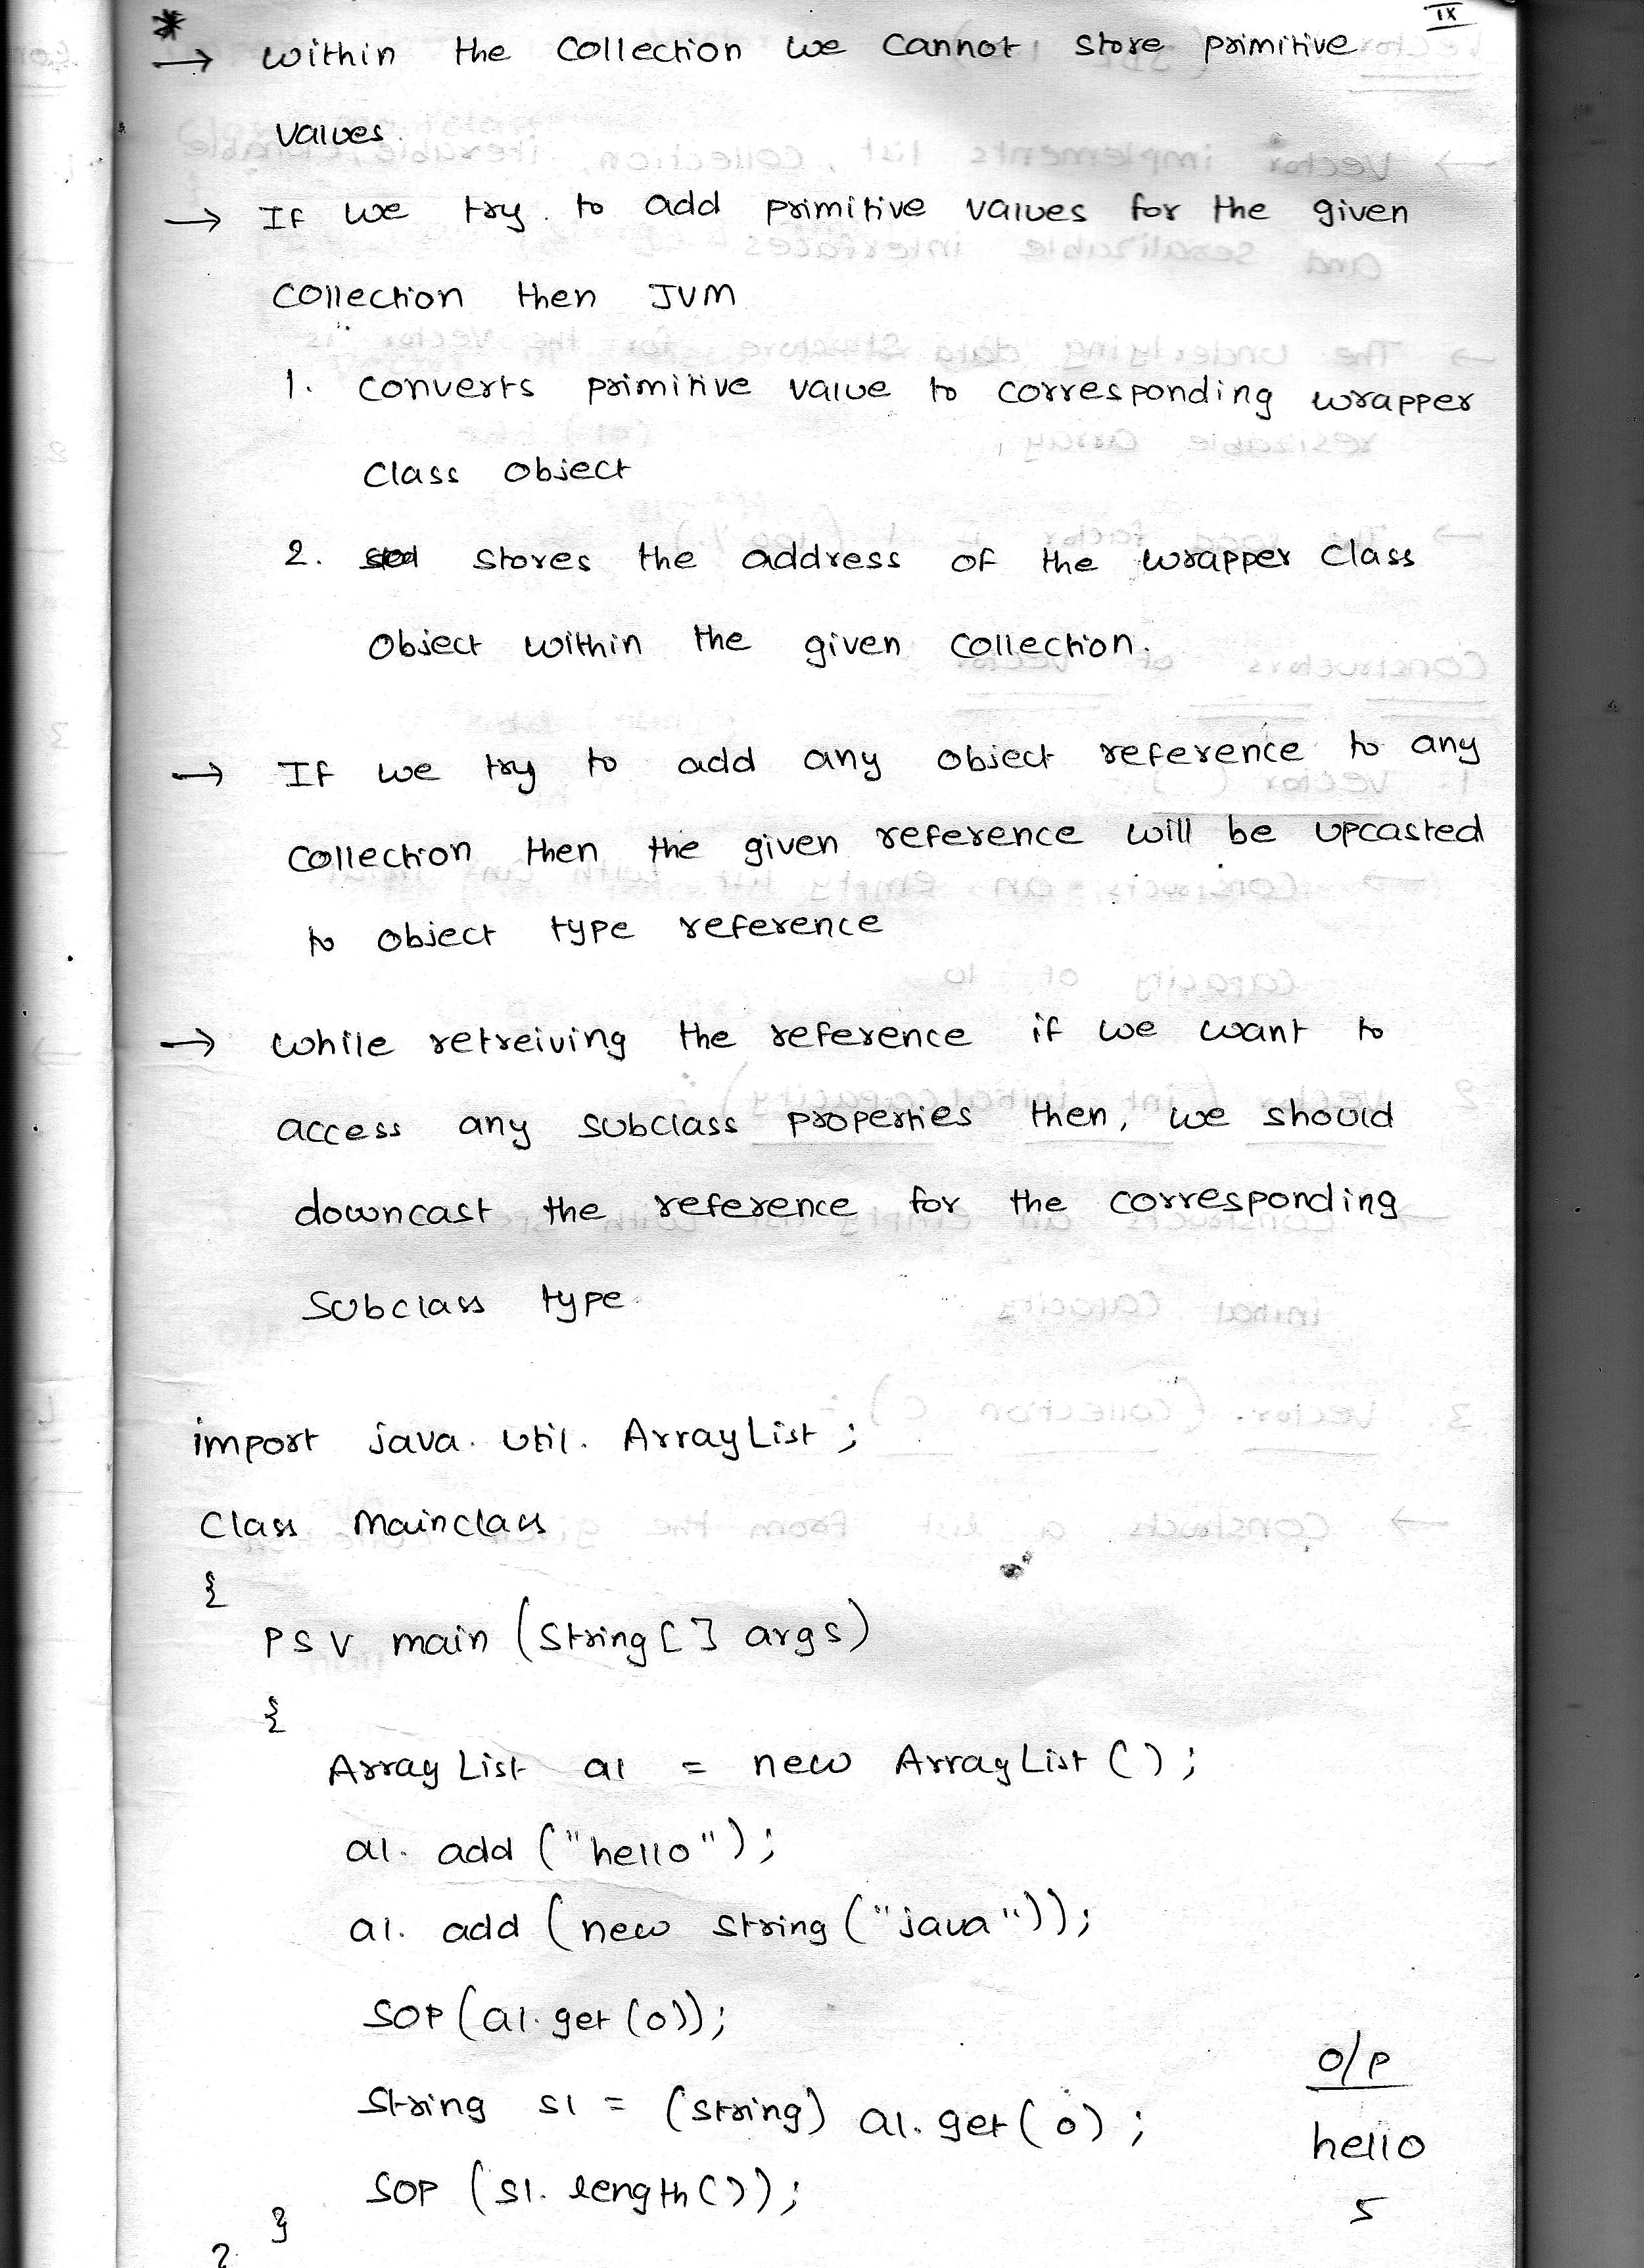 IX
* → within the collection we cannot store primitive
values.
→ If we try to add primitive values for the given
collection then JVM
1. converts primitive value to corresponding wrapper
class object
2. stores the address of the wrapper class
object within the given collection.
→ If we try to add any object reference to any
collection then the given reference will be upcasted
to object type reference
→ while retreiving the reference if we want to
access any subclass properties then, we should
downcast the reference for the corresponding
subclass type.
import java.util.ArrayList;
class Mainclass
{
PSV main (String[] args)
{
ArrayList al = new ArrayList();
al.add("hello");
al.add(new String("java"));
SOP(al.get(0));
String s1 = (String) al.get(0);
SOP(s1.length());
}
}
o/p
hello
5